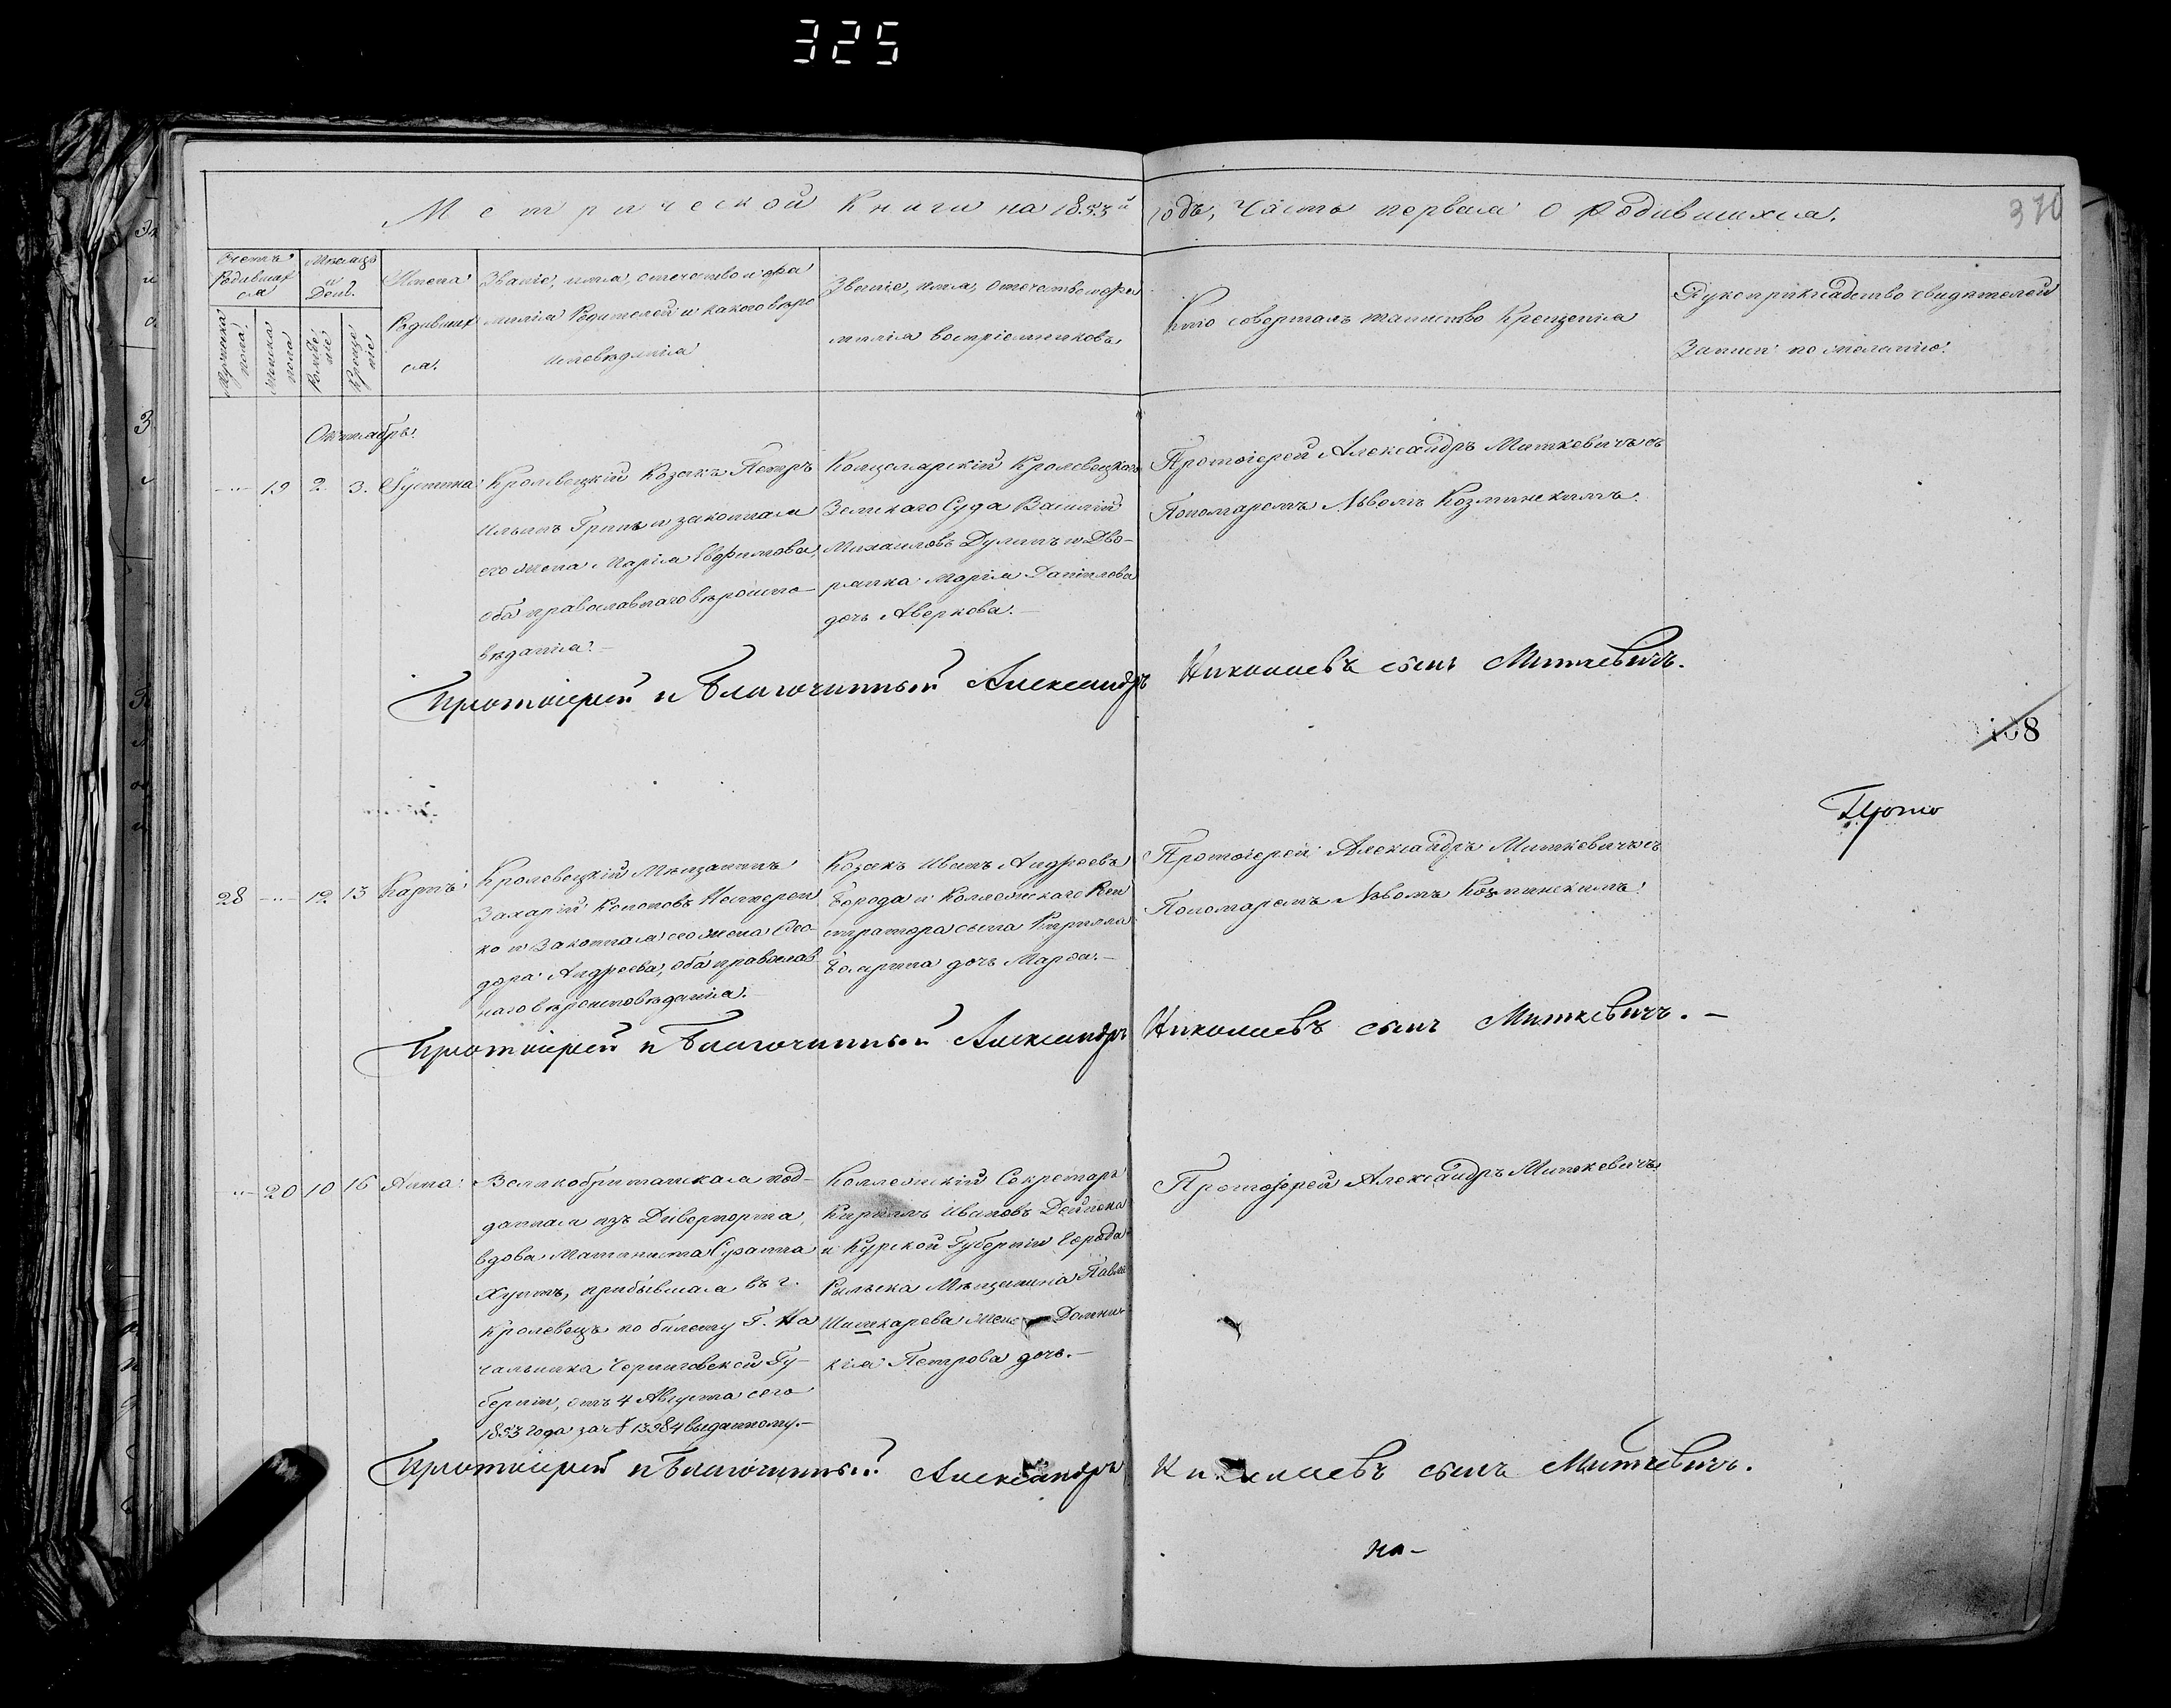 325
Метрической Книги на 1853й годъ, Часть первая о родившихся.
370
Счетъ Родившихся
Мѣсяцъ и День.
Имена Родившихся.
Званіе, имя, отечество и фамилія Родителей и какого вѣроисповѣданія
Званіе, имя, отечество и фамилія воспріемниковъ
Кто совершалъ таинство Крещенія
Рукоприкладство свидѣтелей Записи по желанію.
Мужеска пола.
Женска пола
Рожденіе
Крещеніе
Октябрь.
19
2
3.
Іустина
Кролевецкій Козакъ Петръ
Ильинъ Гринь и законная
его жена Марія Евфимова,
оба православнаго вѣроиспо-
вѣданія.-
Канцелярскій Кролевецкаго
Земскаго Суда Василій
Михаиловъ Дулинъ и Дво-
рянка Марія Даніилова
дочь Аверкова.-
Протоіерей Александръ Миткевичъ съ
Пономаремъ Львомъ Козминскимъ.
Протоіерей и Благочинный Александръ Николаевъ сынъ Миткевичъ.
108
Прото
28
12
13
Карпъ
Кролевецкій Мѣщанинъ
Захарій Кононовъ Нестерен
ко и Законная его жена Ѳео-
дора Андреева, оба православ
наго вѣроисповѣданія.-
Козакъ Иванъ Андреевъ
Борода и Коллежскаго Реги
стратора сына Кирилла
Боярина дочь Марѳа.-
Протоіерей Александръ Миткевичъ съ
Пономаремъ Львомъ Козминскимъ.
Протоіерей и Благочинный Александръ Николаевъ сынъ Миткевичъ.-
20
10
16
Анна
Великобританская под-
данная изъ Диверпорта,
вдова Машиниста Сузанна
Хунтъ, прибывшая въ г.
Кролевецъ по билету Г. На
чальника Черниговской Гу-
берніи, отъ 4 Августа сего
1853 года за № 13984 выданному.-
Коллежскій Секретарь
Кириллъ Ивановъ Дейнека
и Курской Губерніи города
Рыльска Мѣщанина Павла
Шишкарева жена Домни-
кія Петрова дочь.-
Протоіерей Александръ Миткевичъ
Протоіерей и Благочинный Александръ Николаевъ сынъ Миткевичъ.
Ни-